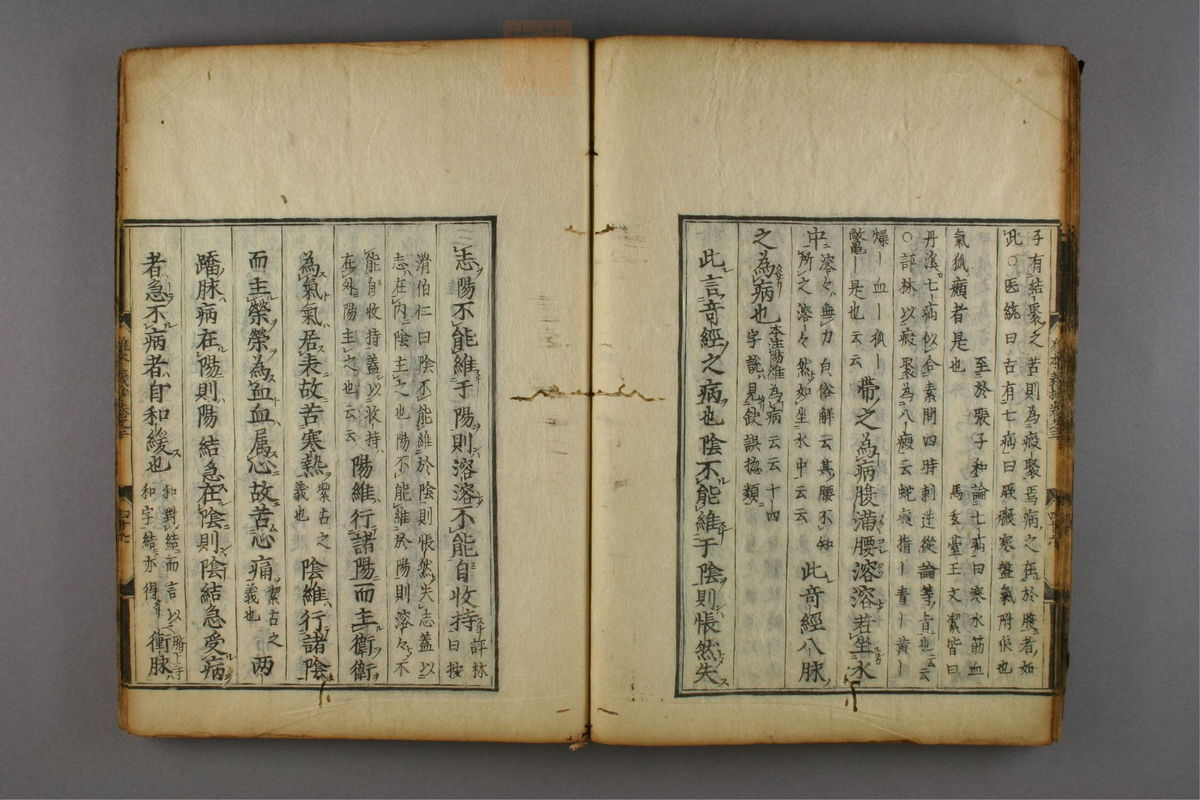 子有結聚之苦則為瘕聚焉病之在於腹者如
此○医統曰古有七疝曰厥癥寒盤氣附狼也
至於張子和論七疝曰寒水筋血
氣狐癩者是也 馬玄臺王文潔皆曰
丹溪七疝似合素問四時刺逆從論等肯也云云
○評林以瘕聚為八瘕云蛇瘕指青黃
燥血狐
是也云云 帶之為病腹滿腰溶溶若坐水
中溶々無力白俗解云其腰不知
所之溶々然如坐水中云云 此奇經八脉
之為病也 本注陽維為病云云十四
字說見
此言奇經之病也陰不能維于陰則悵然失
志陽不能維于陽則溶溶不能自收持 評林
曰按
滑伯仁曰陰不能維於陰則悵然失志蓋以
志在內陰主之也陽不能維於陽則溶々不
能自收持蓋以收持
在外陽主之也云云 陽維行諸陽而主衛衛
為氣氣居表故苦寒熱 潔古之
義也 陰維行諸陰
而主榮榮為血血属心故苦心痛 潔古之
義也 两
蹻脉病在陽則陽結急在陰則陰結急受病
者急不病者自和緩也 和對結而言以
和字結亦得 衝脉